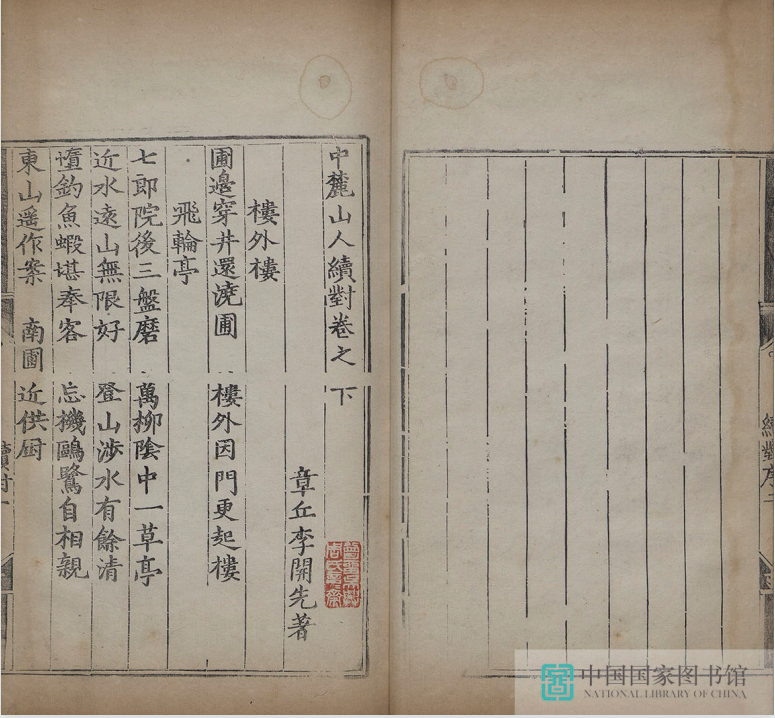 中麓山人續對卷之下
章丘李開先著
樓外樓
圃邊穿井還澆圃 樓外因門更起樓
飛輪亭
七郎院後三盤磨 萬柳陰中一草亭
近水遠山無限好 登山涉水有餘清
釣魚蝦堪奉客 忘機鷗鷺自相親
東山遥作案 南圃近供厨
續對序二
中国国家图书馆
NATIONAL LIBRARY OF CHINA